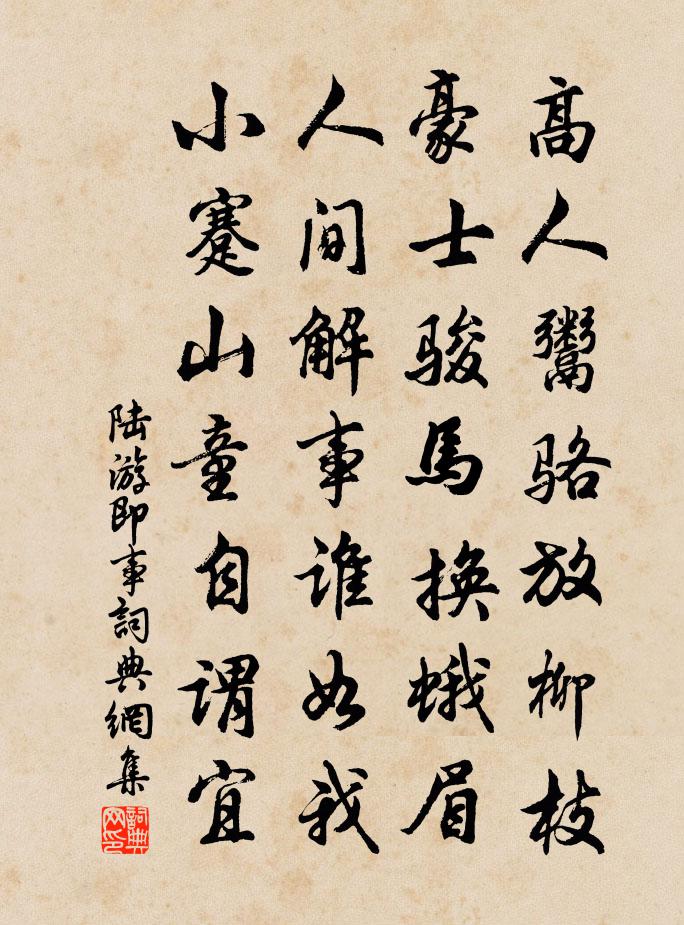 高人鬻骆放柳枝
豪士骏馬换蛾眉
人间解事谁如我
小蹇山童自谓宜
陆游即事詞典網集
詞典网印